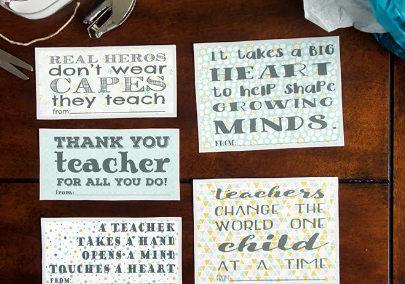 REAL HEROS
don't wear
CAPES
they teach
from:
THANK YOU
teacher
FOR ALL YOU DO!
from:
A TEACHER
TAKES A HAND
OPENS A MIND
TOUCHES A HEART
FROM:
It takes a BIG
HEART
to help shape
GROWING
MINDS.
FROM:
teachers
CHANGE THE
WORLD ONE
child
AT A TIME